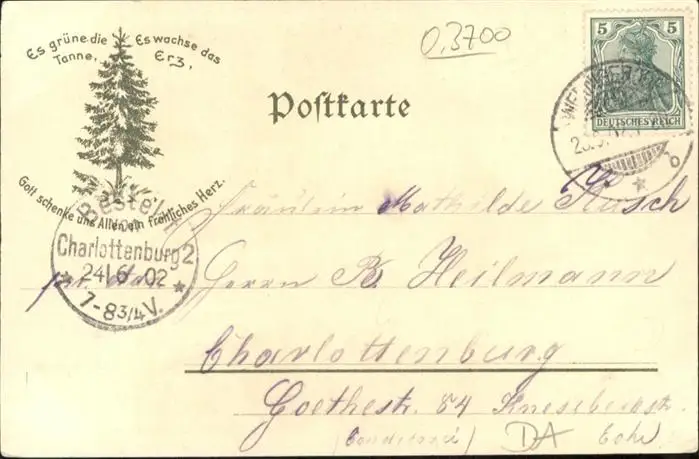 Es grüne die Tanne,
Es wachse das Erz,
Gott schenke uns Allen ein fröhliches Herz.
0,3700
5 5
DEUTSCHES REICH
Postkarte
Bestellt
Charlottenburg 2
24/6 02
7-8 3/4 V.
Fräulein Mathilde
Herrn B. Heilmann
Charlottenburg
Goethestr. 84 Knesebeckstr.
DA Ecke